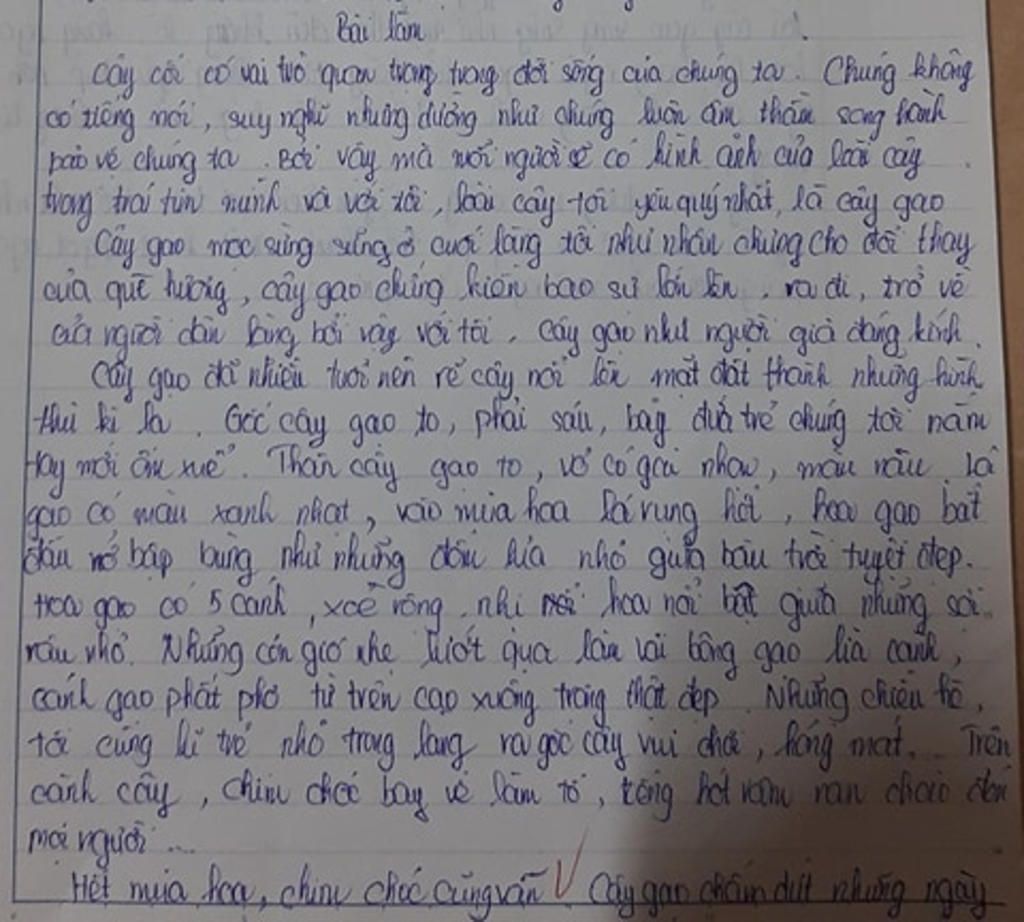 Bài làm
Cây cối có vai trò quan trọng trong đời sống của chúng ta. Chúng không
có tiếng nói, suy nghĩ nhưng dường như chúng luôn âm thầm song hành
bảo vệ chúng ta. Bởi vậy mà mỗi người sẽ có hình ảnh của loài cây
trong trái tim mình và với tôi, loài cây tôi yêu quý nhất, là cây gạo
Cây gạo mọc sừng sững ở cuối làng tôi như nhân chứng cho đổi thay
của quê hương, cây gạo chứng kiến bao sự lớn lên, ra đi, trở về
của người dân làng bởi vậy với tôi, cây gạo như người già đáng kính.
Cây gạo đã nhiều tuổi nên rễ cây nổi lên mặt đất thành những hình
thù kì lạ. Gốc cây gạo to, phải sáu, bảy đứa trẻ chúng tôi nắm
tay mới ôm xuể. Thân cây gạo to, vỏ có gai nhọn, màu nâu. Lá
gạo có màu xanh nhạt, vào mùa hoa lá rụng hết, hoa gạo bắt
đầu nở bập bùng như những đốm lửa nhỏ giữa bầu trời tuyệt đẹp.
Hoa gạo có 5 cánh, xoè rộng, nhị hoa nổi bật giữa những sợi
râu nhỏ. Những cơn gió nhẹ lướt qua làm vài bông gạo lìa cành,
cánh gạo phất phơ từ trên cao xuống trông thật đẹp. Những chiều hè,
tôi cùng lũ trẻ nhỏ trong làng ra gốc cây vui chơi, hóng mát... Trên
cành cây, chim chóc bay về làm tổ, tiếng hót râm ran chào đón
mọi người...
Hết mùa hoa, chim chóc cũng vãn Cây gạo chấm dứt những ngày